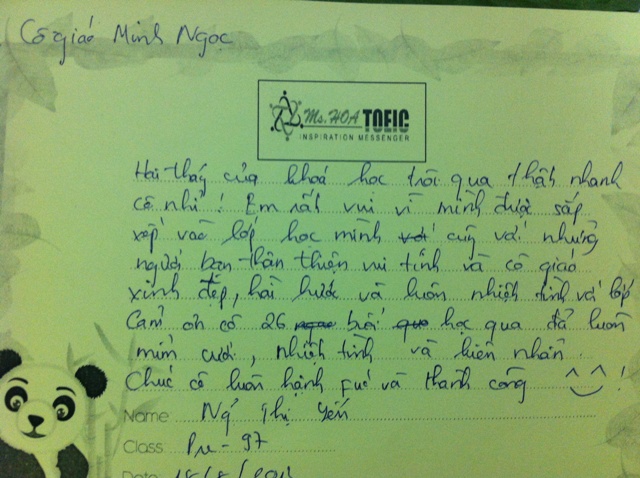 Cô giáo Minh Ngọc
Ms. HOA TOEIC
INSPIRATION MESSENGER
Hai tháng của khoá học trôi qua thật nhanh
cô nhỉ! Em rất vui vì mình được sắp
xếp vào lớp học mình với cùng với những
người bạn thân thiện vui tính và cô giáo
xinh đẹp, hài hước và luôn nhiệt tình với lớp
Cảm ơn cô 26 ngày buổi qua học qua đã luôn
mỉm cười, nhiệt tình và kiên nhẫn.
Chúc cô luôn hạnh fúc và thành công ^^!
Name Ng̃ Thị Yến
Class Pre - 97
Date